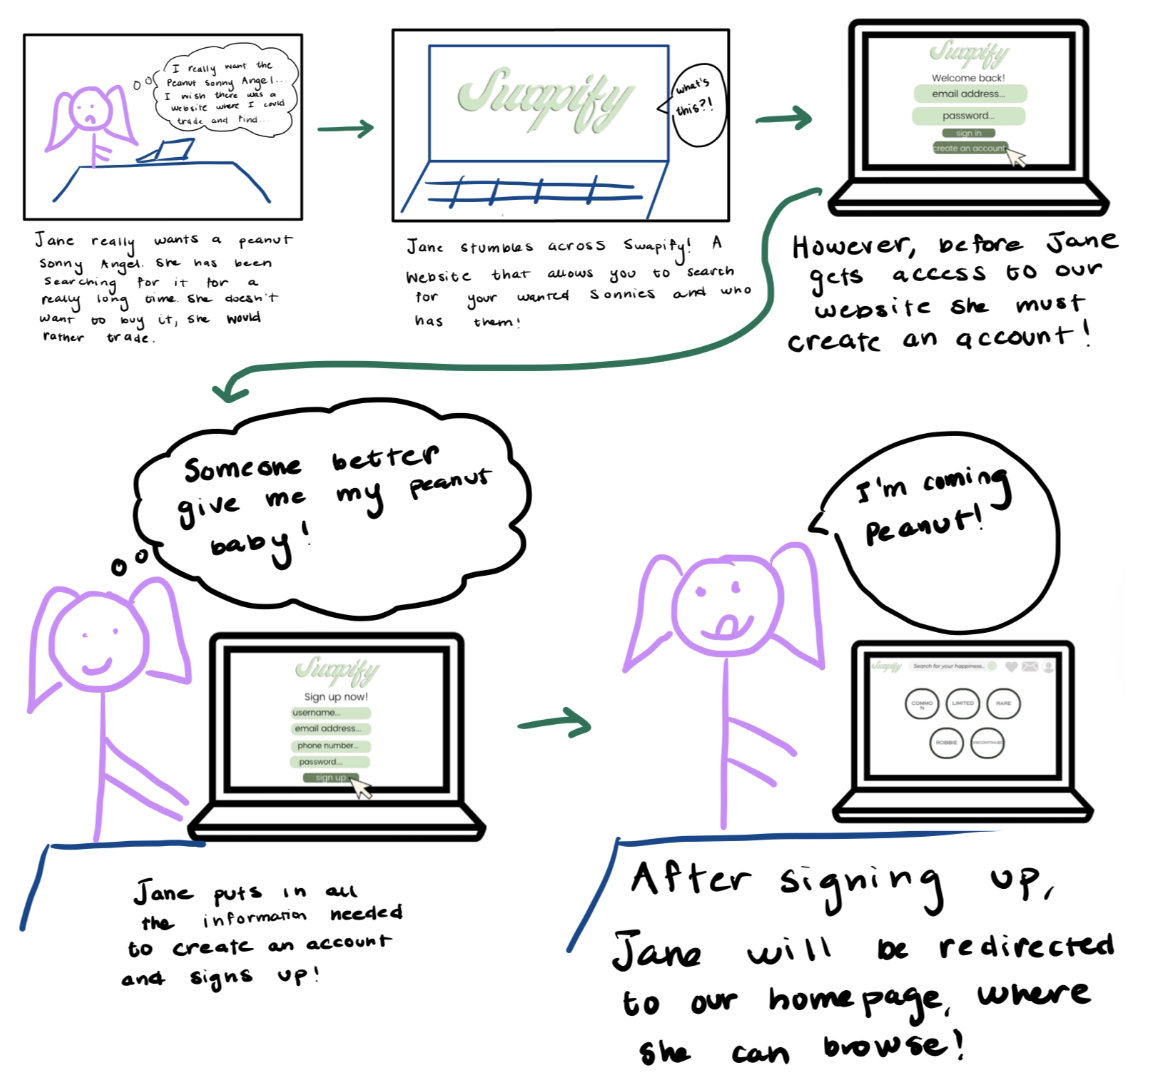 I really want the
Peanut Sonny Angel...
I wish there was a
website where I could
trade and find...
Jane really wants a peanut
Sonny Angel. She has been
searching for it for a
really long time. She doesn't
want to buy it, she would
rather trade.
Swapify
what's
this?!
Jane stumbles across Swapify! A
Website that allows you to search
for your wanted Sonnies and who
has them!
Swapify
Welcome back!
email address...
password...
sign in
create an account
However, before Jane
gets access to our
website she must
create an account!
Someone better
give me my peanut
baby!
Swapify
Sign up now!
username...
email address...
phone number...
password...
sign up
Jane puts in all
the information needed
to create an account
and signs up!
I'm coming
Peanut!
Swapify
Search for your happiness...
COMMO
N
LIMITED
RARE
ROBBIE
DISCONTINUED
After signing up,
Jane will be redirected
to our homepage, where
she can browse!